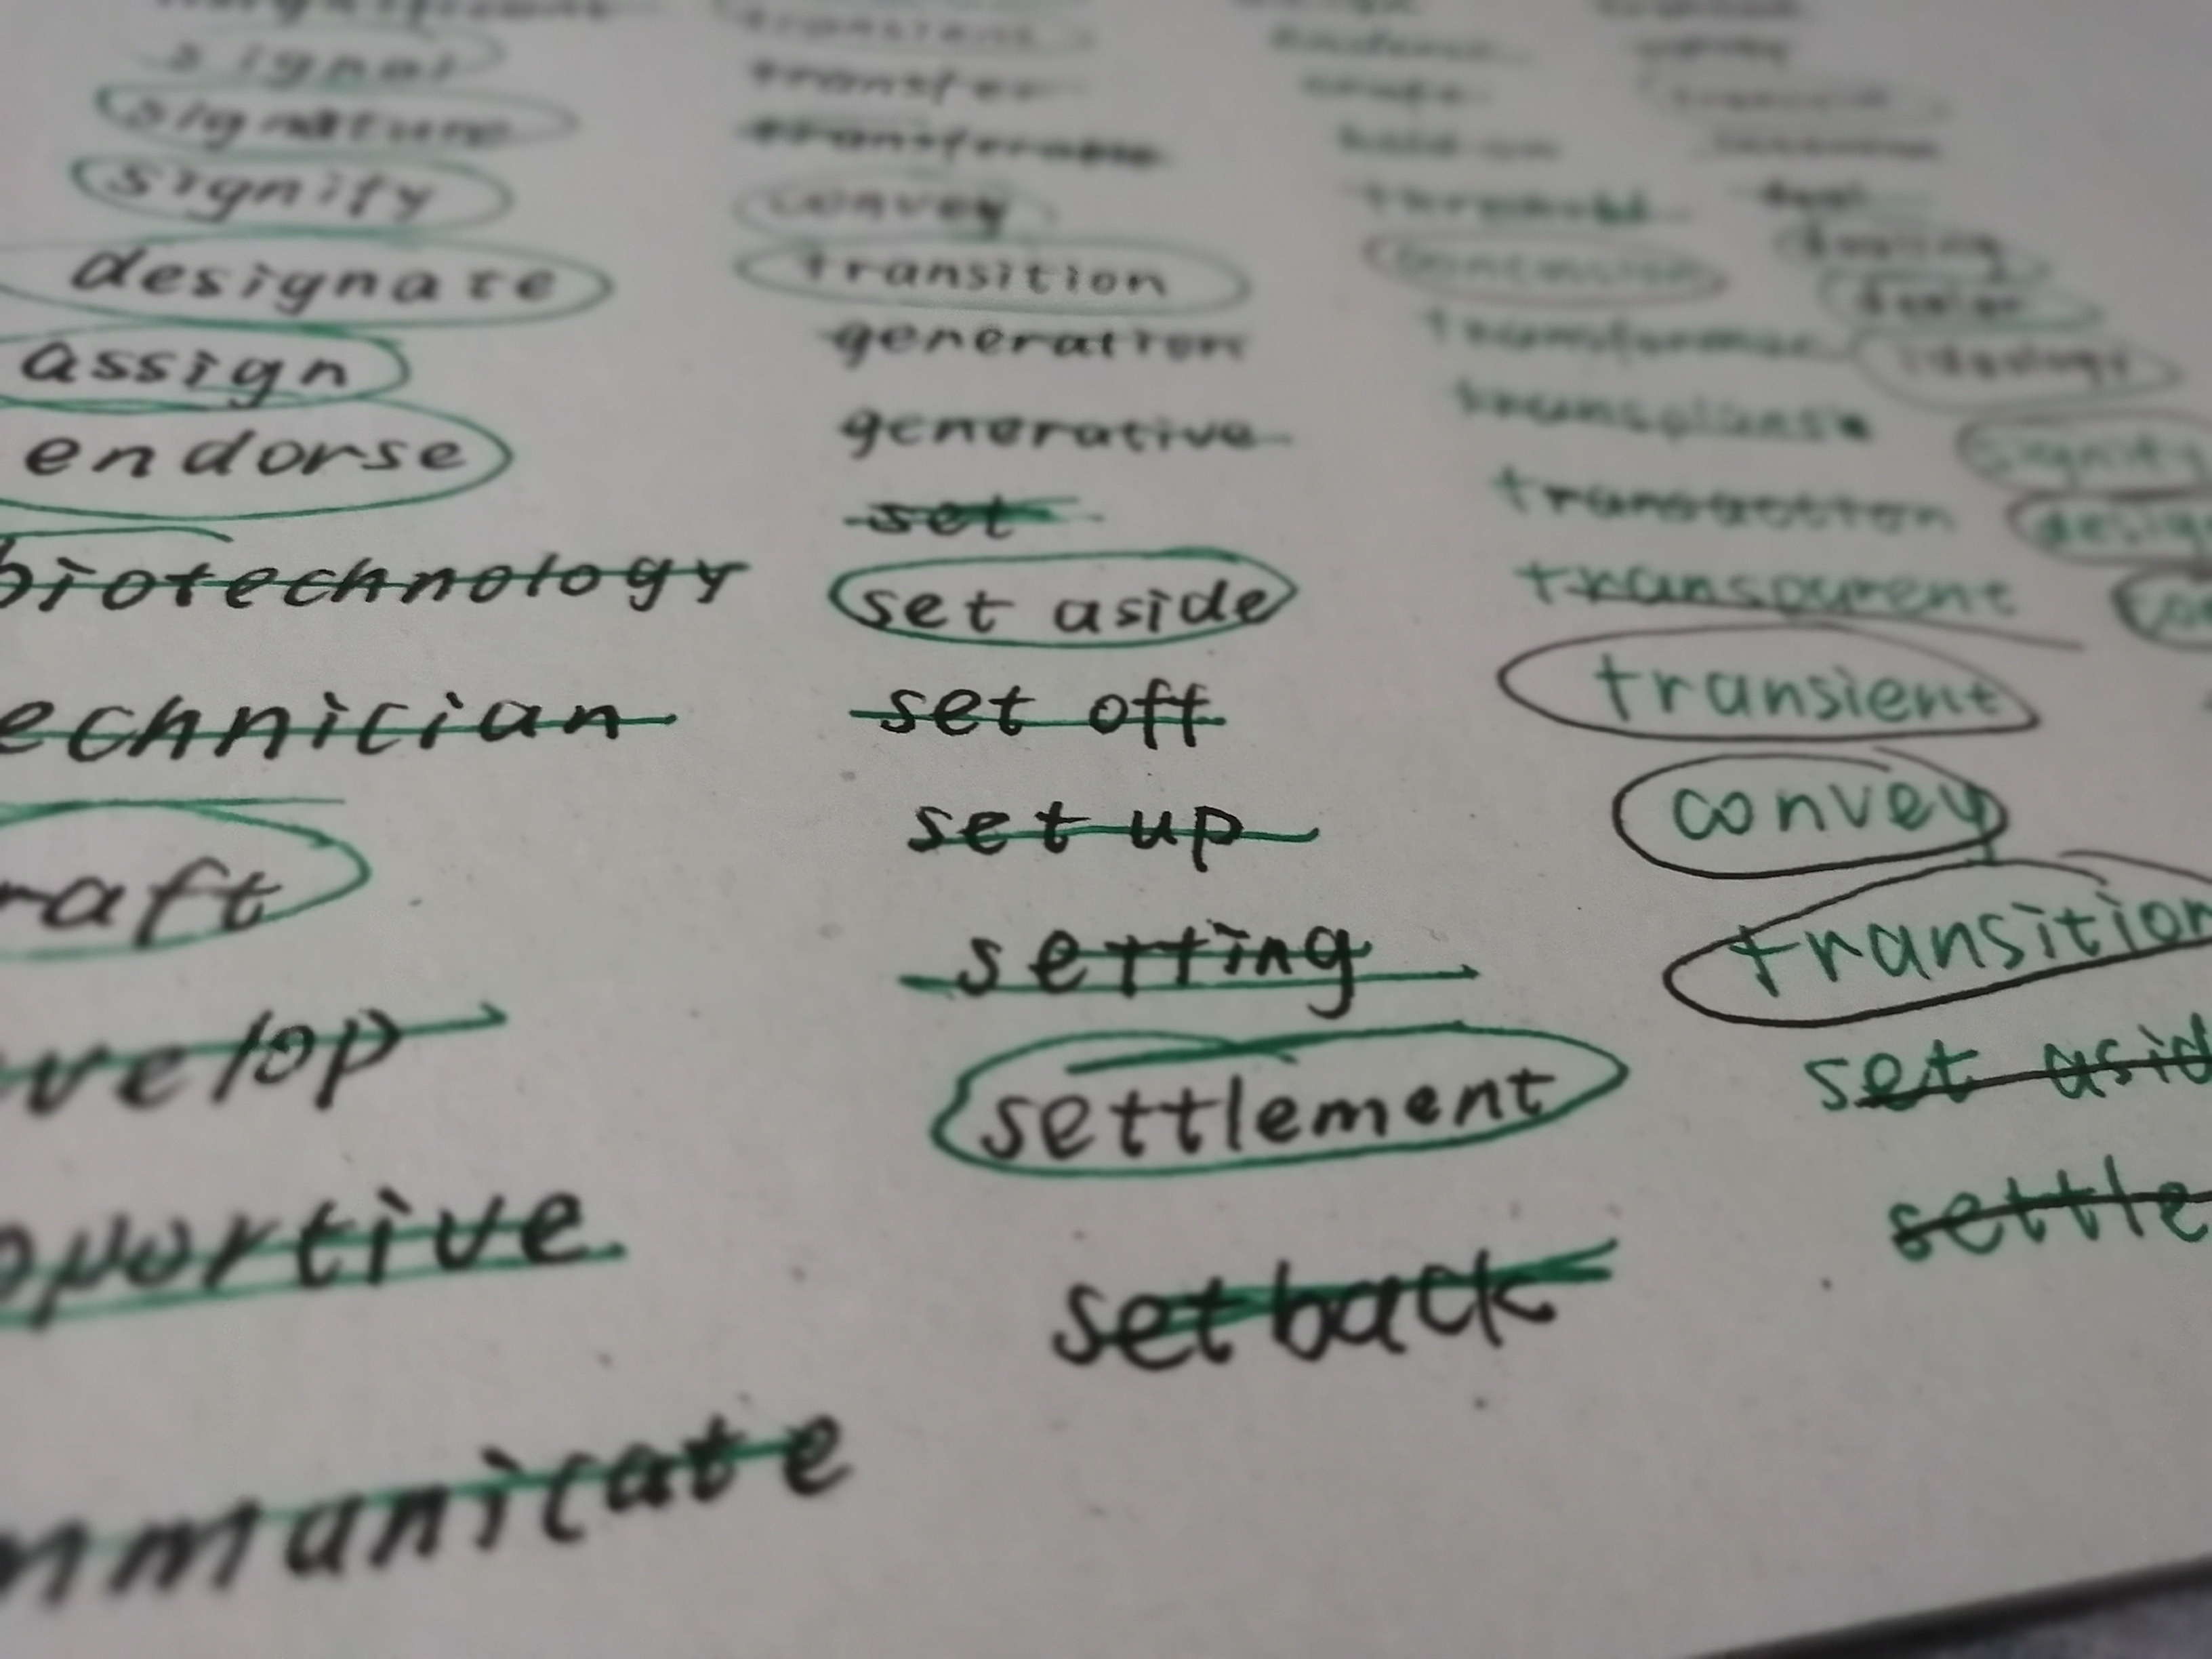 signal
signature
signify
designate
assign
endorse
biotechnology
echnician
raft
velop
portive
mmunicate
transient
transfer
transferable
convey
transition
generation
generative
set
set aside
set off
set up
setting
settlement
setback
hold on
threshold
concession
transformer
transplant
transaction
transparent
transient
convey
transition
set asid
settle
deal
dealing
dealer
ideology
signify
design